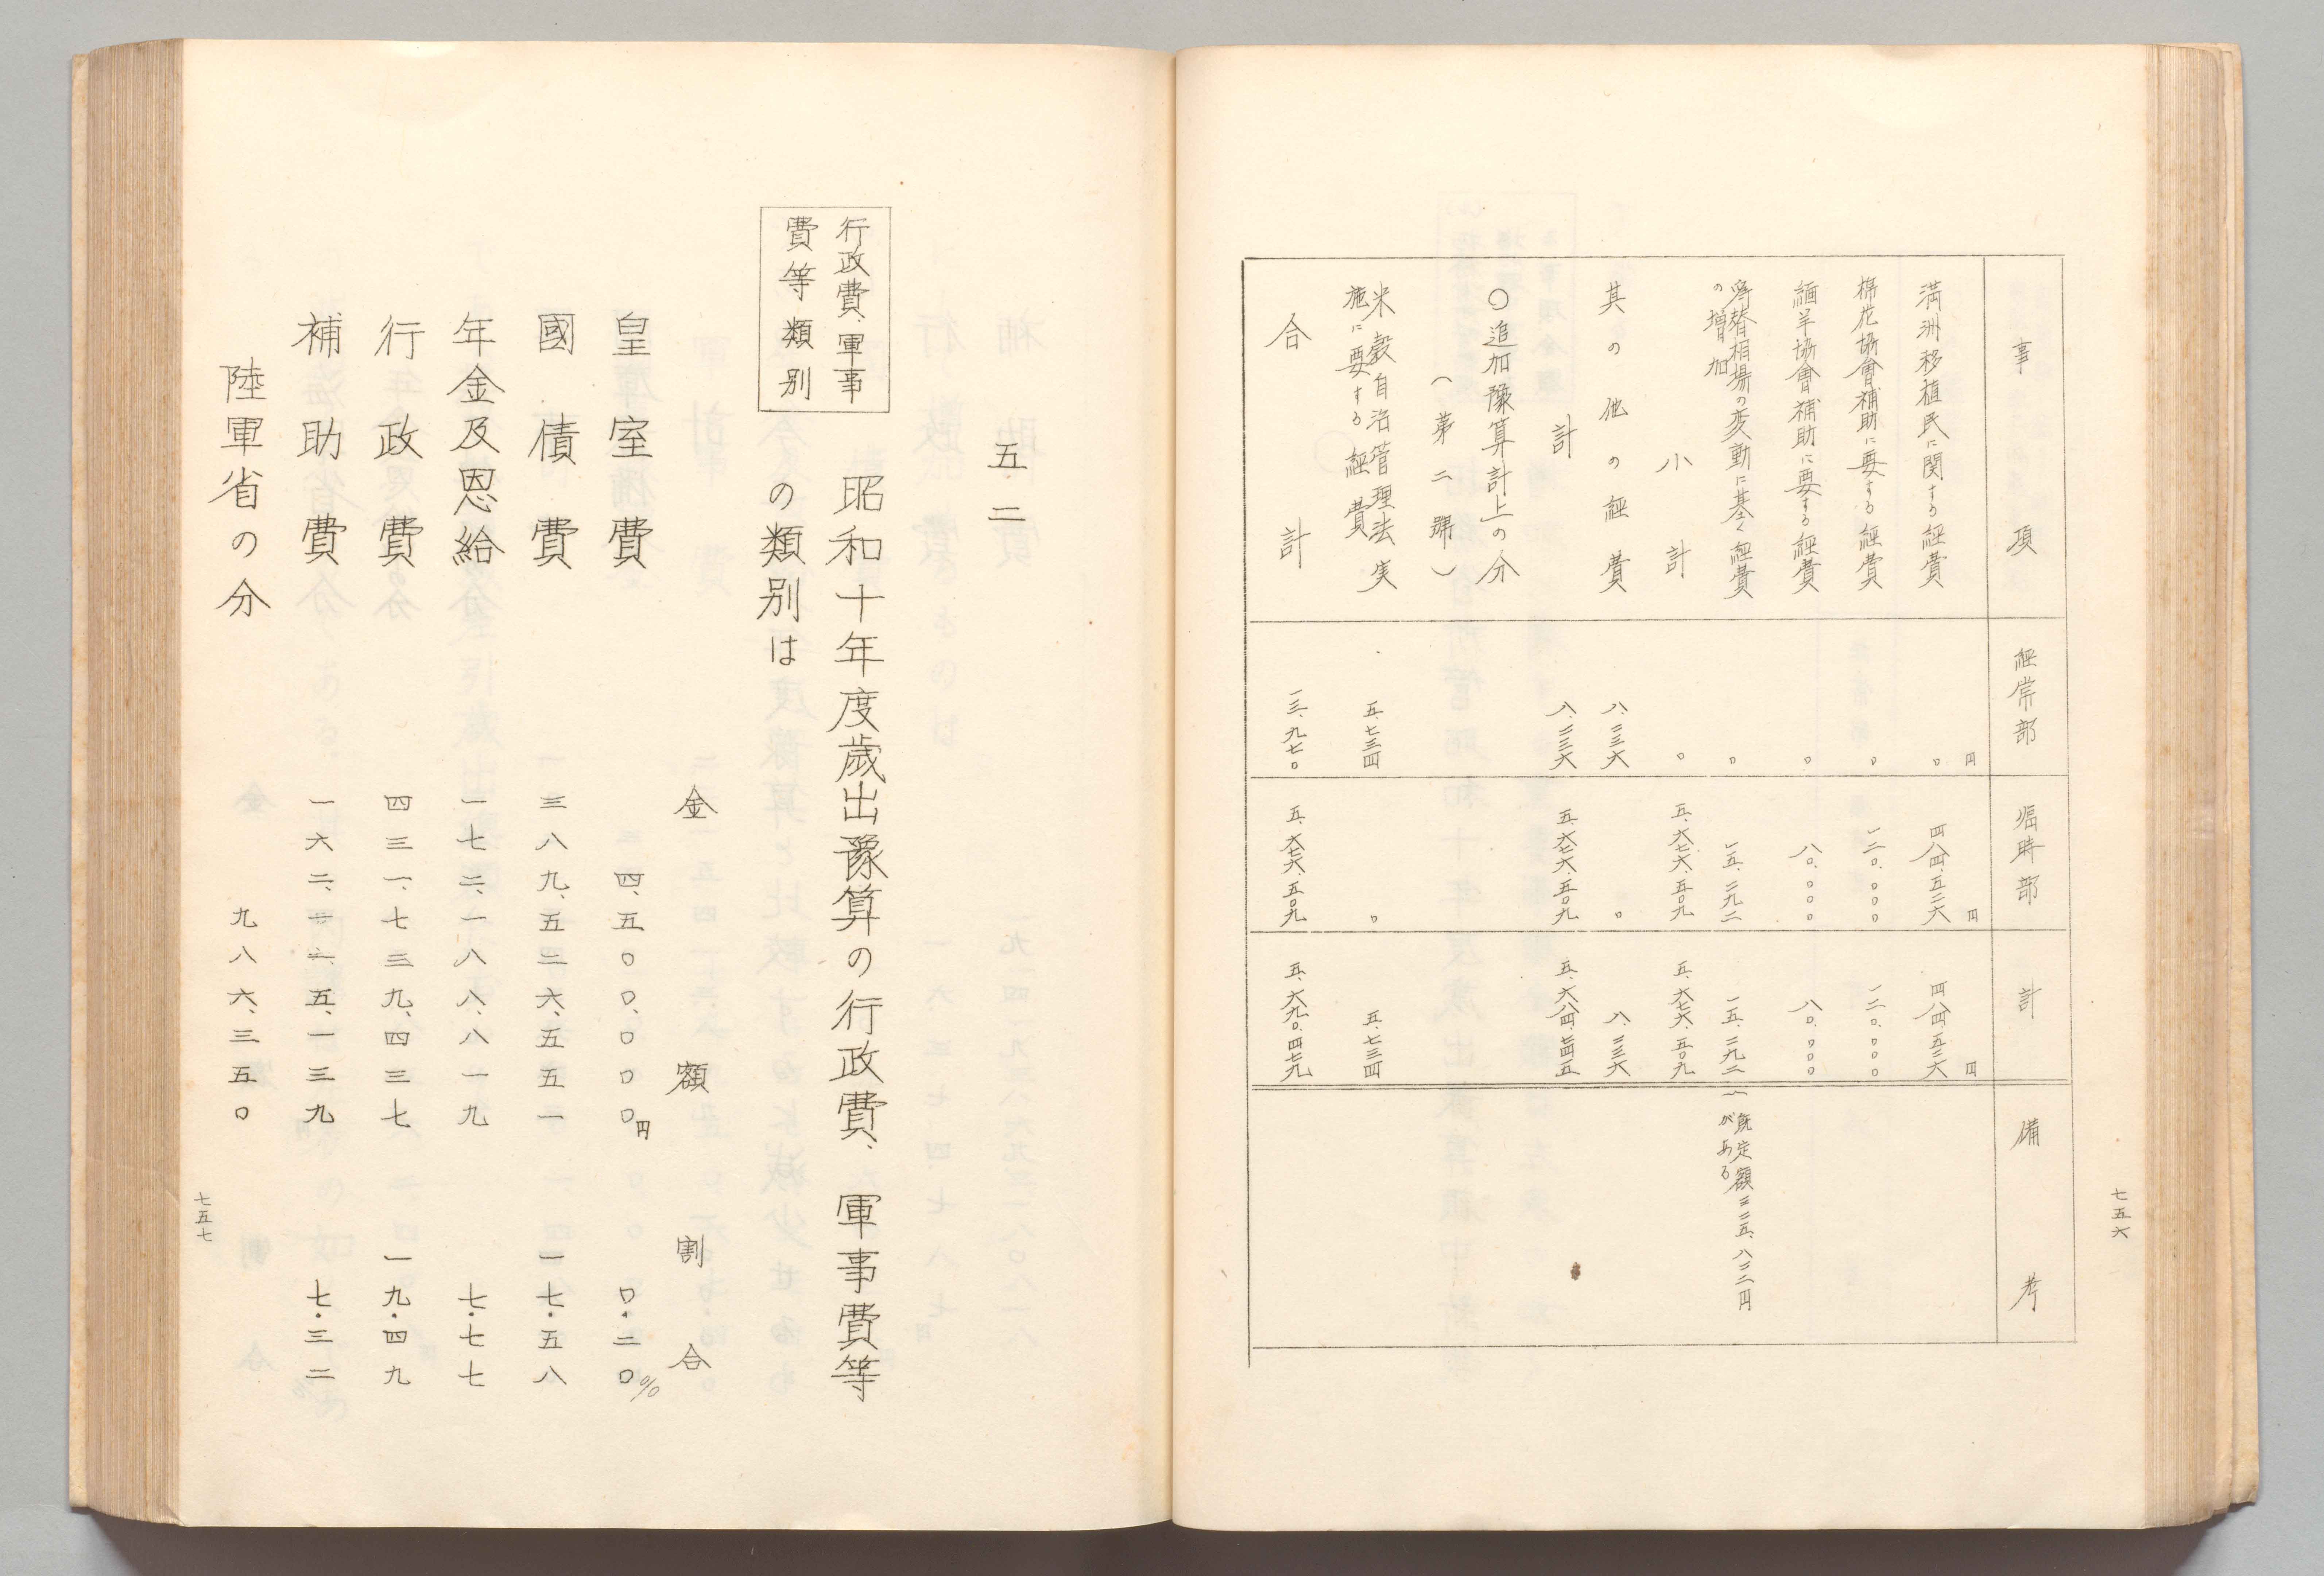 七五六
事項 経常部 臨時部 計 備考
円 円 円
満洲移植民に関する経費 〇 四八四、五二六 四八四、五二六
棉花協會補助に要する経費 〇 一二〇、〇〇〇 一二〇、〇〇〇
緬羊協會補助に要する経費 〇 八〇、〇〇〇 八〇、〇〇〇
為替相場の変動に基く経費 〇 一五、二九二 一五、二九二 既定額三二五、八二二円
の増加 がある
小計 〇 五、六七六、五〇九 五、六七六、五〇九
其の他の経費 八、二三六 〇 八、二三六
計 八、二三六 五、六七六、五〇九 五、六八四、七四五
〇追加豫算計上の分
(第二號)
米穀自治管理法実 五、七三四 〇 五、七三四
施に要する経費
合計 一三、九七〇 五、六七六、五〇九 五、六九〇、四七九
五・二
行政費、軍事
費等類別
昭和十年度歳出豫算の行政費、軍事費等
の類別は
金額 割合
皇室費 四、五〇〇、〇〇〇円 〇・二〇%
國債費 三八九、五二六、五五一 一七・五八
年金及恩給 一七二、一八八、八一九 七・七七
行政費 四三一、七三九、四三七 一九・四九
補助費 一六二、二二五、一三九 七・三二
陸軍省の分 九八六、三五〇
七五七